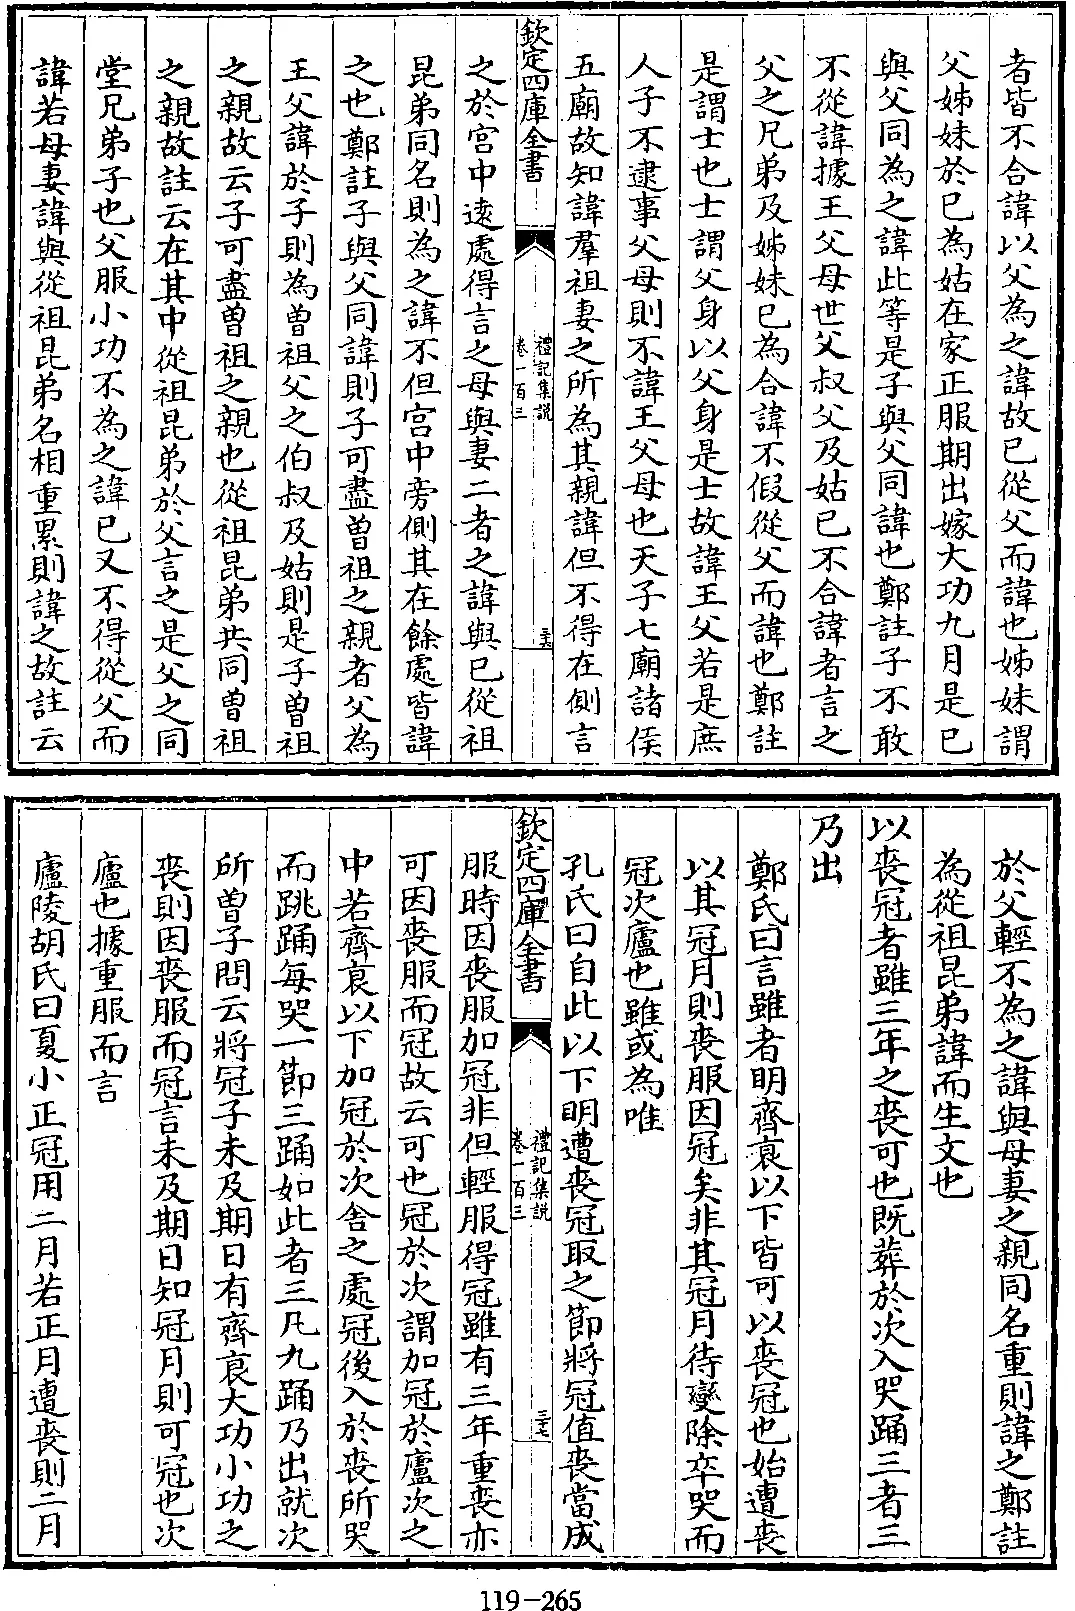 者皆不合諱以父為之諱故已從父而諱也姊妹謂
父姊妹於已為姑在家正服期出嫁大功九月是已
與父同為之諱此等是子與父同諱也鄭註子不敢
不從諱據王父母世父叔父及姑已不合諱者言之
父之兄弟及姊妹已為合諱不假從父而諱也鄭註
是謂士也士謂父身以父身是士故諱王父若是庶
人子不逮事父母則不諱王父母也天子七廟諸侯
五廟故知諱羣祖妻之所為其親諱但不得在側言
欽定四庫全書
禮記集説
卷一百三
三十六
之於宫中逺處得言之母與妻二者之諱與已從祖
昆弟同名則為之諱不但宫中旁側其在餘處皆諱
之也鄭註子與父同諱則子可盡曾祖之親者父為
王父諱於子則為曾祖父之伯叔及姑則是子曾祖
之親故云子可盡曾祖之親也從祖昆弟共同曾祖
之親故註云在其中從祖昆弟於父言之是父之同
堂兄弟子也父服小功不為之諱已又不得從父而
諱若母妻諱與從祖昆弟名相重累則諱之故註云
於父輕不為之諱與母妻之親同名重則諱之鄭註
為從祖昆弟諱而生文也
以喪冠者雖三年之喪可也既葬於次入哭踊三者三
乃出
鄭氏曰言雖者明齊衰以下皆可以喪冠也始遭喪
以其冠月則喪服因冠矣非其冠月待變除卒哭而
冠次廬也雖或為唯
孔氏曰自此以下明遭喪冠取之節將冠值喪當成
欽定四庫全書
禮記集説
卷一百三
三十七
服時因喪服加冠非但輕服得冠雖有三年重喪亦
可因喪服而冠故云可也冠於次謂加冠於廬次之
中若齊衰以下加冠於次舍之處冠後入於喪所哭
而跳踊每哭一節三踊如此者三凡九踊乃出就次
所曾子問云將冠子未及期日有齊衰大功小功之
喪則因喪服而冠言未及期日知冠月則可冠也次
廬也據重服而言
廬陵胡氏曰夏小正冠用二月若正月遭喪則二月
119-265